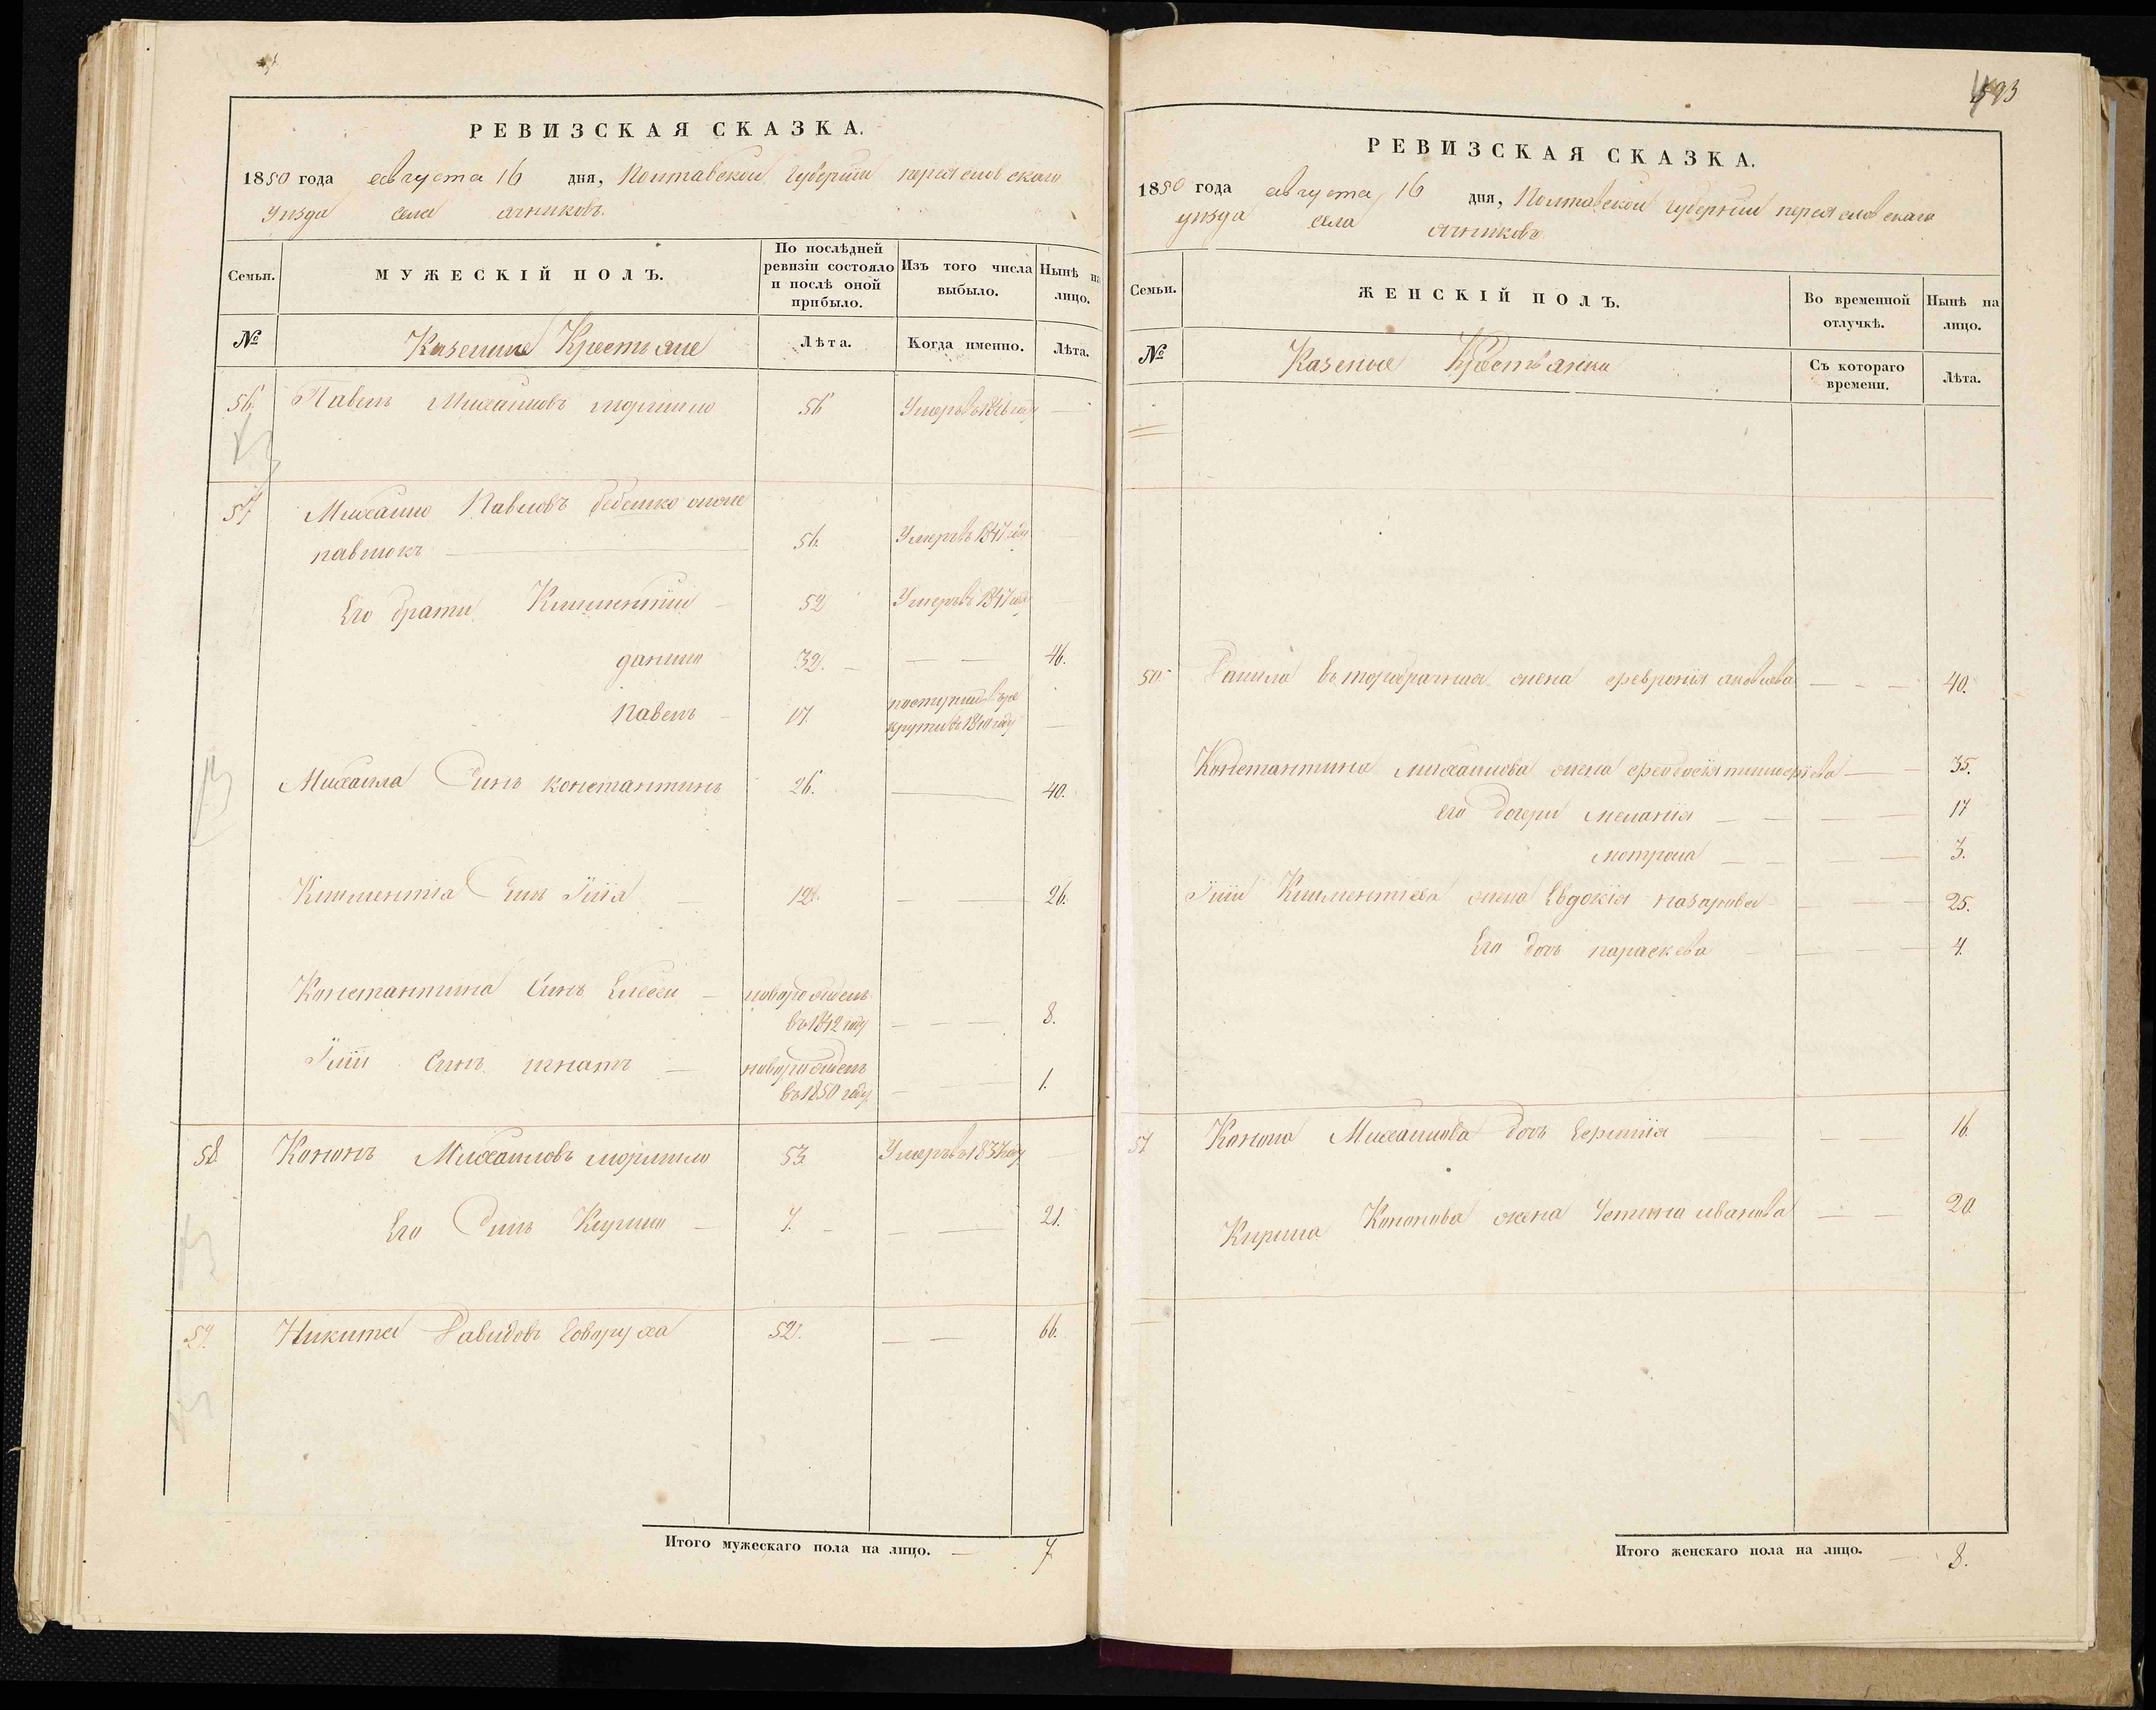 РЕВИЗСКАЯ СКАЗКА.
1850 года августа 16 дня, Полтавской Губернии переяславскаго
уезда села ячников.
Семьи.
МУЖЕСКІЙ ПОЛЪ.
По послѣдней ревизіи состояло и послѣ оной прибыло.
Изъ того числа выбыло.
Нынѣ на лицо.
№
Казенние Крестяне
Лѣта.
Когда именно.
Лѣта.
56. Павелъ Михаиловъ 56 Умеръ въ 1846 году —
57. Михаило Павловъ
павлюкъ — 56. Умеръ въ 1847 году —
Его брати Климентий — 52 Умеръ въ 1847 году —
данило 32. — — — 46.
Павелъ — 17. поступилъ въ ре
крути въ 1840 году —
Михаила Синъ константинъ 26. — 40.
Климентіа Синъ Іліа — 12. — — 26.
Константина Синъ Елесей — новорожденъ
въ 1842 году — — — 8.
Іліи Синъ игнатъ — новорожденъ
въ 1850 году — — — 1.
58. Кононъ Михаиловъ 53. Умеръ въ 1837 году —
Его Синъ Кирило — 7. — — — 21.
59. Никита Давидовъ Говоруха 52. — — 66.
Итого мужескаго пола на лицо. — 7.
593
РЕВИЗСКАЯ СКАЗКА.
1850 года августа 16 дня, Полтавской Губернии переяславскаго
уезда села ячников
Семьи.
ЖЕНСКІЙ ПОЛЪ.
Во временной отлучкѣ.
Нынѣ на лицо.
№
Казеные Крестьянки
Съ котораго времени.
Лѣта.
Данила второбрачная жена феврония яковлева — — — 40.
Константина михаилова жена феодосія — — 35.
его дочери меланія — — — — 17
мотрона — — — — 3.
Іліи Климентіева жена Евдокія назарова — — — 25.
Его дочь параскева — — — — 4.
57 Конона Михаилова дочь — — 16.
Кирила Кононова жена Устина иванова — — 20.
Итого женскаго пола на лицо. — 8.